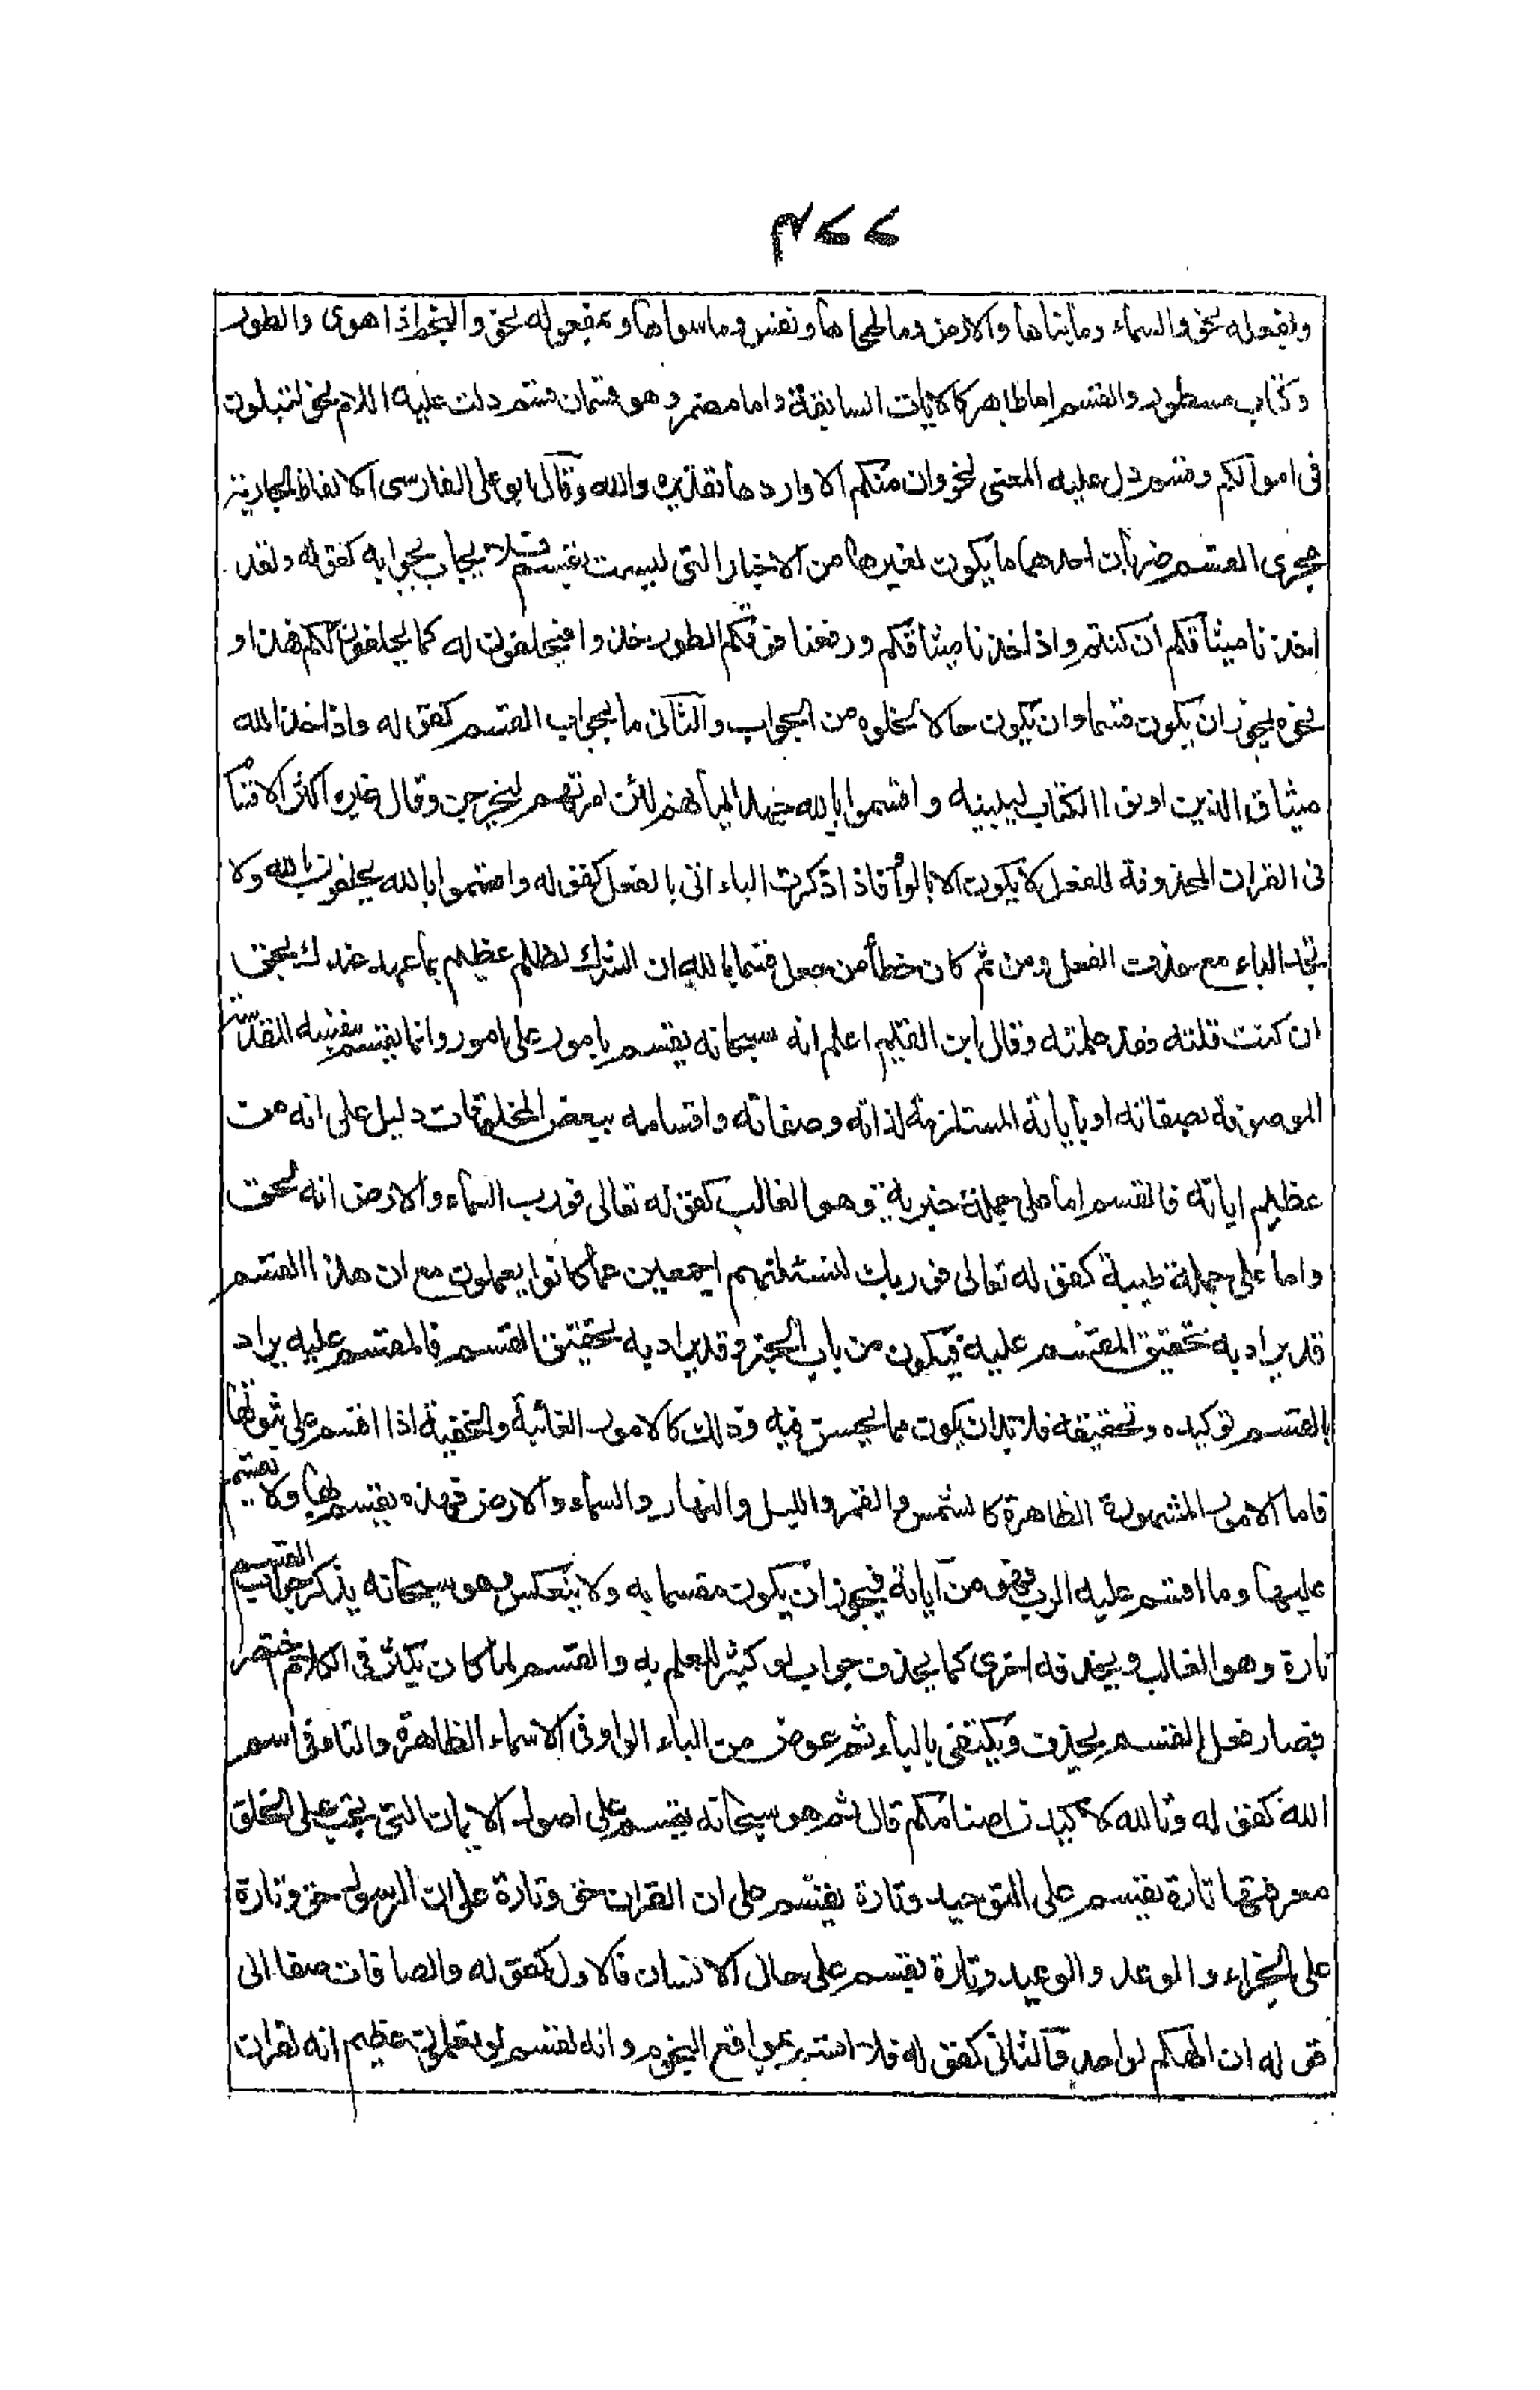 ٣٧٧
وبفعله نحو والسماء وما بناها والارض وما طحاها ونفس وما سواها وبمفعوله نحو والنجم اذا هوى والطور
وكتاب مسطور والقسم اما ظاهر كالايات السابقة واما مضمر وهو قسمان قسم دلت عليه اللام نحو لتبلون
فى اموالكم وقسم دل عليه المعنى نحو وان منكم الا واردها تقديره والله وقال ابو على الفارسى الالفاظ الجارية
مجرى القسم ضربان احدهما ما يكون لغيرها من الاخبار التى ليست بقسم فلا يجاب بجوابه كقوله ولقد
اخذنا ميثاقكم ان كنتم واذ اخذنا ميثاقكم ورفعنا فوقكم الطور خذوا فيحلفون له كما يحلفون لكم فهذا و
نحوه يجوز ان يكون قسما وان يكون حالا لخلوه من الجواب والثانى ما بجواب القسم كقوله واذ اخذ الله
ميثاق الذين اوتوا الكتاب ليبيننه واقسموا بالله جهد ايمانهم لئن امرتهم ليخرجن وقال غيره اكثر الاقسام
فى القران المحذوفة للفعل لا يكون الا بالواو فاذا ذكرت الباء اتى بالفعل كقوله واقسموا بالله يحلفون بالله ولا
تجد الباء مع حذف الفعل ومن ثم كان خطأ من جعل قسما بالله ان الشرك لظلم عظيم بما عهد عندك بحق
ان كنت قلته فقد علمته وقال ابن القيم اعلم انه سبحانه يقسم بامور على امور وانما يقسم بنفسه المقدسة
الموصوفة بصفاته او بآياته المستلزمة لذاته وصفاته واقسامه ببعض المخلوقات دليل على انه من
عظيم اياته فالقسم اما على جملة خبرية وهو الغالب كقوله تعالى فورب السماء والارض انه لحق
واما على جملة طلبية كقوله تعالى فوربك لنسئلنهم اجمعين عما كانوا يعملون مع ان هذا القسم
قد يراد به تحقيق المقسم عليه فيكون من باب الخبر وقد يراد به تحقيق القسم فالمقسم عليه يراد
بالقسم توكيده وتحقيقه فلا بد ان يكون مما يحسن فيه وذلك كالامور الغائبة والخفية اذا اقسم على ثبوتها
فاما الامور المشهورة الظاهرة كالشمس والقمر والليل والنهار والسماء والارض فهذه يقسم بها ولا يقسم
عليها وما اقسم عليه الرب فهو من آياته فيجوز ان يكون مقسما به ولا ينعكس وهو سبحانه يذكر جواب القسم
تارة وهو الغالب ويحذفه اخرى كما يحذف جواب لو كثيرا للعلم به والقسم لما كان يكثر فى الكلام اختصر
فصار فعل القسم يحذف ويكتفى بالباء ثم عوض من الباء الواو فى الاسماء الظاهرة والتاء فى اسم
الله كقوله وتالله لاكيدن اصنامكم قال ثم هو سبحانه يقسم على اصول الايمان التى يجب على الخلق
معرفتها تارة يقسم على التوحيد وتارة يقسم على ان القران حق وتارة على ان الرسول حق وتارة
على الجزاء والوعد والوعيد وتارة يقسم على حال الانسان فالاول كقوله والصافات صفا الى
قوله ان الهكم لواحد والثانى كقوله فلا اقسم بمواقع النجوم وانه لقسم لو تعلمون عظيم انه لقران